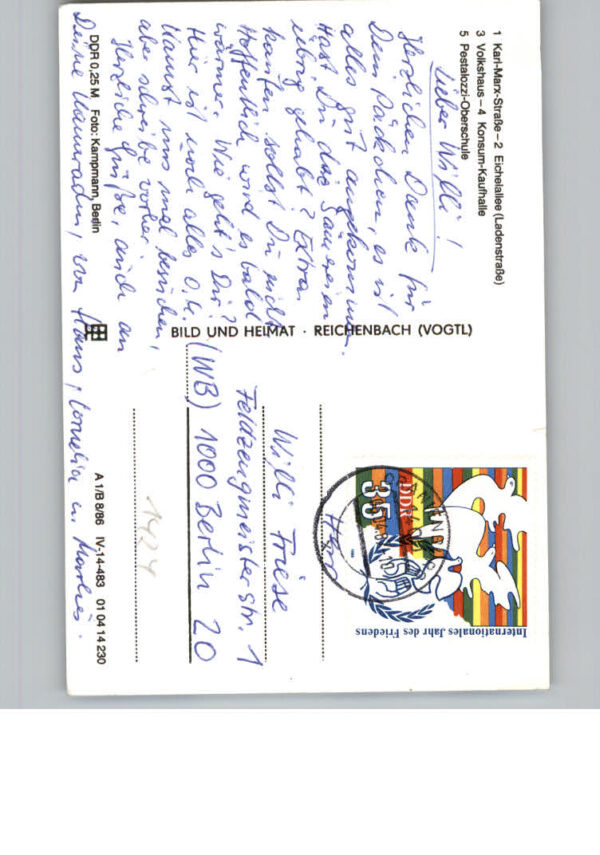 1 Karl-Marx-Straße – 2 Eichelallee (Ladenstraße)
3 Volkshaus – 4 Konsum-Kaufhalle
5 Pestalozzi-Oberschule
Lieber Willi!
Herzlichen Dank für
Dein Päckchen, es ist
alles gut angekommen.
Hast Du das
übrig gehabt? Extra
kaufen sollst Du nicht.
Hoffentlich wird es bald
wärmer. Wie geht's Dir?
Hier ist noch alles O.K.
Kannst uns mal besuchen,
aber schreibe vorher.
Herzliche Grüße, auch an
Deine Kameradin, von Hans, Cornelia u. Marlies.
DDR 0,25 M Foto: Kampmann, Berlin
BILD UND HEIMAT · REICHENBACH (VOGTL)
A 1/B 8/86 IV-14-483 01 04 14 230
Internationales Jahr des Friedens
DDR
35
Herr
Willi Friese
Feldzeugmeisterstr. 1
(WB) 1000 Berlin 20
1424